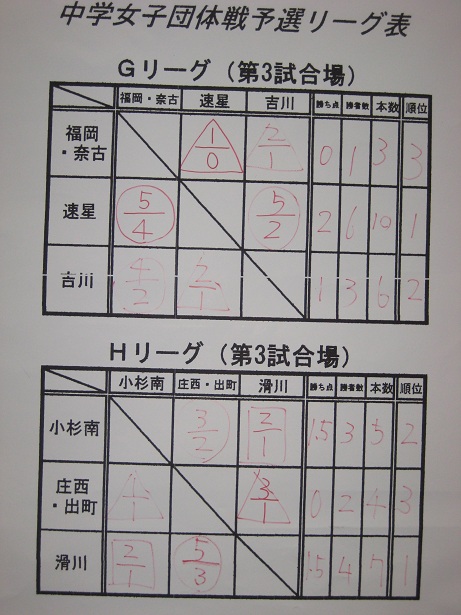 中学女子団体戦予選リーグ表
Gリーグ（第3試合場）
福岡・奈古 速星 吉川 勝ち点 勝者数 本数 順位
福岡・奈古 1/0 2/1 0 1 3 3
速星 5/4 5/2 2 6 10 1
吉川 4/2 2/1 1 3 6 2
Hリーグ（第3試合場）
小杉南 庄西・出町 滑川 勝ち点 勝者数 本数 順位
小杉南 3/2 2/1 1.5 3 5 2
庄西・出町 1 3/1 0 2 4 3
滑川 2/1 5/3 1.5 4 7 1